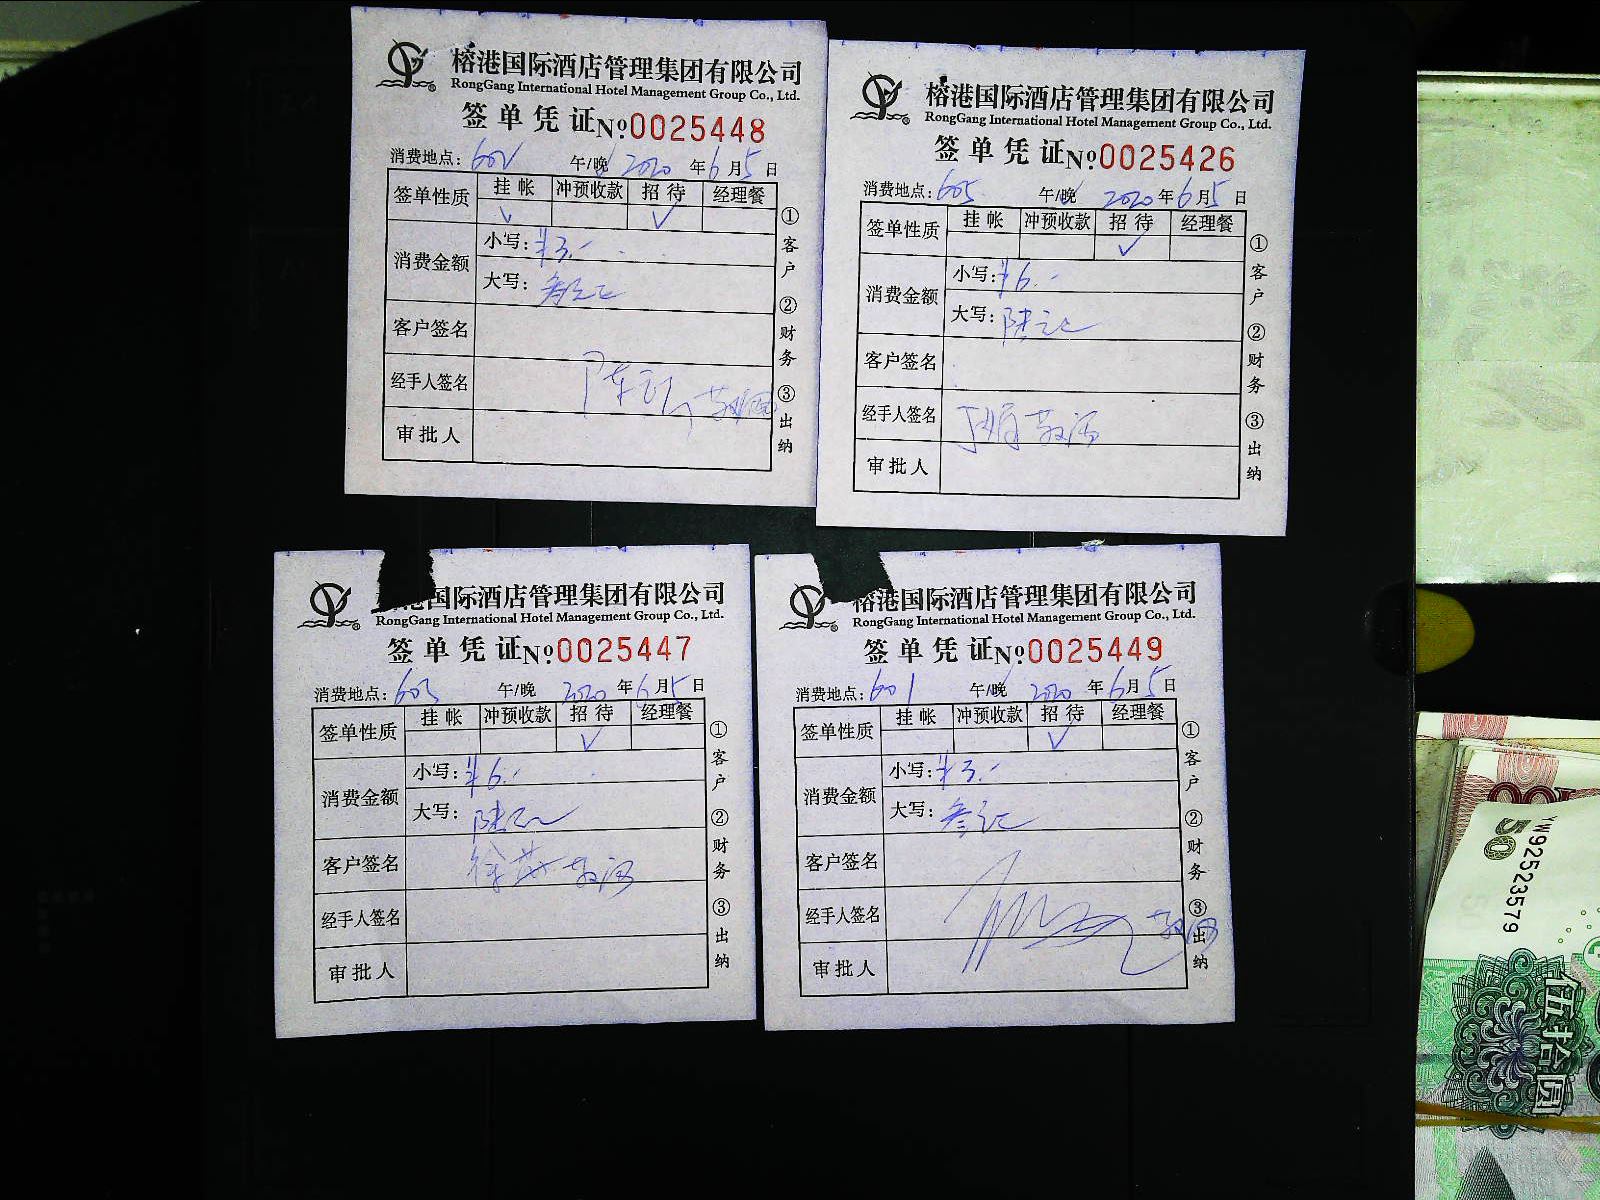 榕港国际酒店管理集团有限公司
RongGang International Hotel Management Group Co., Ltd.
签单凭证 №0025448
消费地点: 602 午/晚 2020 年 6 月 5 日
签单性质 挂帐 冲预收款 招待 经理餐
✓ ✓
消费金额 小写: ¥3.-
大写: 叁元
客户签名
经手人签名
审批人
①客户 ②财务 ③出纳
榕港国际酒店管理集团有限公司
RongGang International Hotel Management Group Co., Ltd.
签单凭证 №0025426
消费地点: 605 午/晚 2020 年 6 月 5 日
签单性质 挂帐 冲预收款 招待 经理餐
✓
消费金额 小写: ¥6.-
大写: 陆元
客户签名
经手人签名
审批人
①客户 ②财务 ③出纳
国际酒店管理集团有限公司
RongGang International Hotel Management Group Co., Ltd.
签单凭证 №0025447
消费地点: 603 午/晚 2020 年 6 月 5 日
签单性质 挂帐 冲预收款 招待 经理餐
✓
消费金额 小写: ¥6.-
大写: 陆元
客户签名
经手人签名
审批人
①客户 ②财务 ③出纳
榕港国际酒店管理集团有限公司
RongGang International Hotel Management Group Co., Ltd.
签单凭证 №0025449
消费地点: 601 午/晚 2020 年 6 月 5 日
签单性质 挂帐 冲预收款 招待 经理餐
✓
消费金额 小写: ¥3.-
大写: 叁元
客户签名
经手人签名
审批人
①客户 ②财务 ③出纳
50
YW92523579
伍拾圆